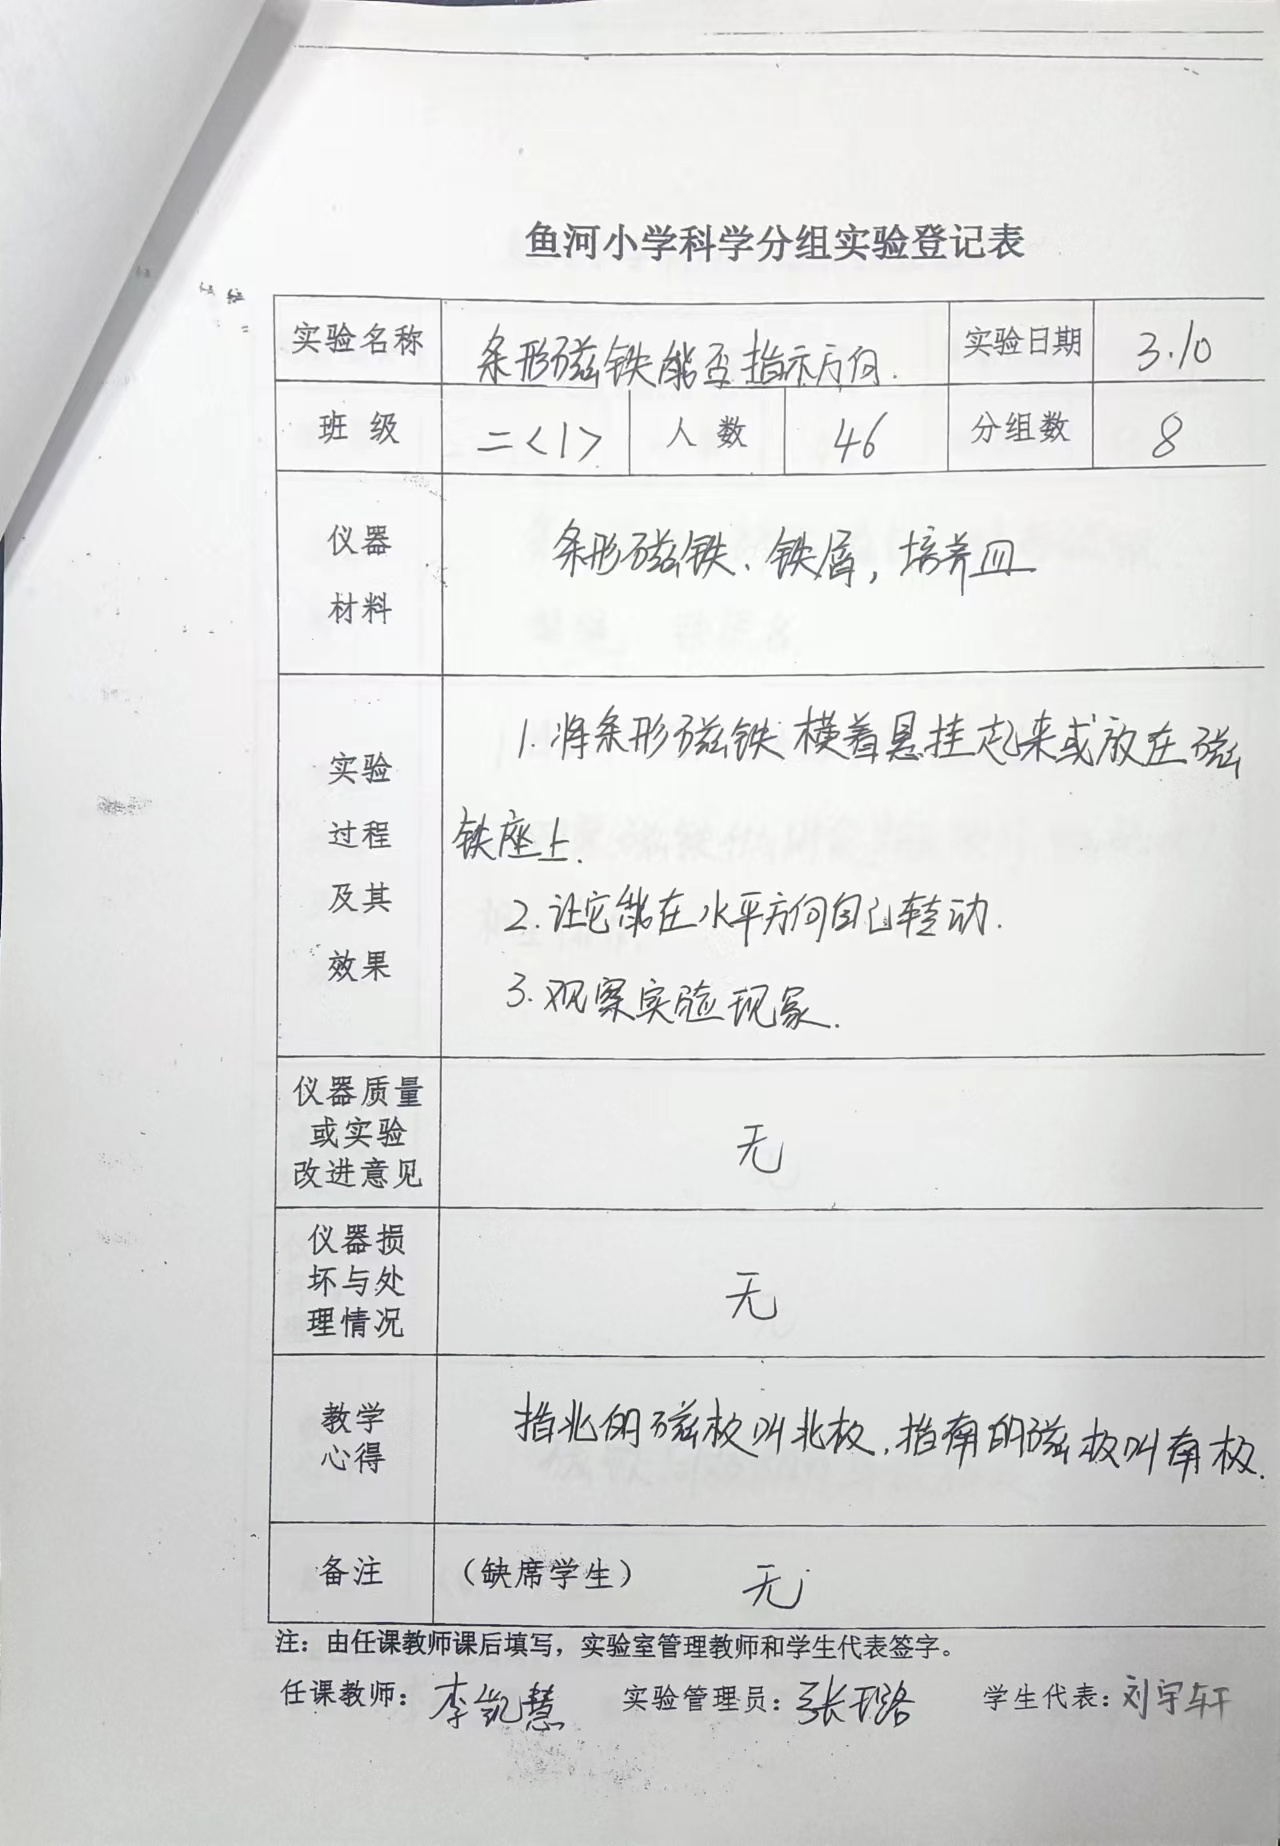 鱼河小学科学分组实验登记表
实验名称 条形磁铁能否指示方向. 实验日期 3.10
班 级 二<1> 人 数 46 分组数 8
仪器 材料 条形磁铁、铁屑,培养皿
实验 过程 及其 效果 1.将条形磁铁横着悬挂起来或放在磁
铁座上.
2.让它能在水平方向自己转动.
3.观察实验现象.
仪器质量 或实验 改进意见 无
仪器损 坏与处 理情况 无
教学 心得 指北的磁极叫北极,指南的磁极叫南极.
备注 (缺席学生) 无
注:由任课教师课后填写,实验室管理教师和学生代表签字。
任课教师:李凯慧 实验管理员:张璐 学生代表:刘宇轩